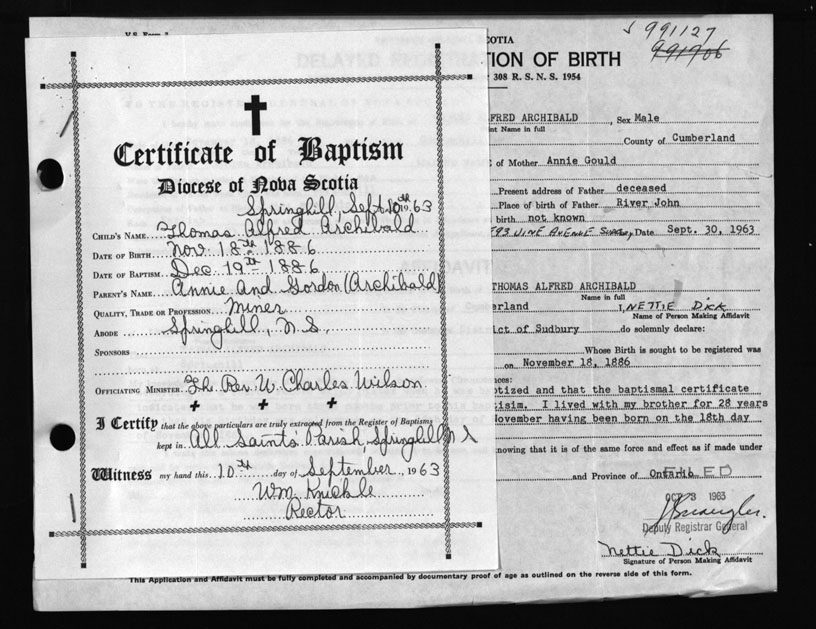 V.S. Form
SCOTIA
991127
991906
ION OF BIRTH
308 R. S. N. S. 1954
FRED ARCHIBALD, Sex Male
nt Name in full
County of Cumberland
of Mother Annie Gould
Present address of Father deceased
Place of birth of Father River John
birth not known
PINE AVENUE Date Sept. 30, 1963
THOMAS ALFRED ARCHIBALD
Name in full
erland I, NETTIE DICK
Name of Person Making Affidavit
ict of Sudbury do solemnly declare:
Whose Birth is sought to be registered was
on November 18, 1886
nces:
ptized and that the baptismal certificate
tisim. I lived with my brother for 28 years
ovember having been born on the 18th day
nowing that it is of the same force and effect as if made under
and Province of Ontario
OCT 3 1963
Deputy Registrar General
Nettie Dick
Signature of Person Making Affidavit
This Application and Affidavit must be fully completed and accompanied by documentary proof of age as outlined on the reverse side of this form.
Certificate of Baptism
Diocese of Nova Scotia
Springhill, Sept. 10th 1963
CHILD'S NAME Thomas Alfred Archibald
DATE OF BIRTH Nov. 18th 1886
DATE OF BAPTISM Dec. 19th 1886
PARENT'S NAME Annie and Gordon (Archibald)
QUALITY, TRADE OR PROFESSION Miner
ABODE Springhill, N.S.,
SPONSORS
OFFICIATING MINISTER The Rev. W. Charles Wilson
I Certify that the above particulars are truly extracted from the Register of Baptisms
kept in All Saints' Parish, Springhill N S
Witness my hand this 10th day of September, 1963
Wm. Knickle
Rector